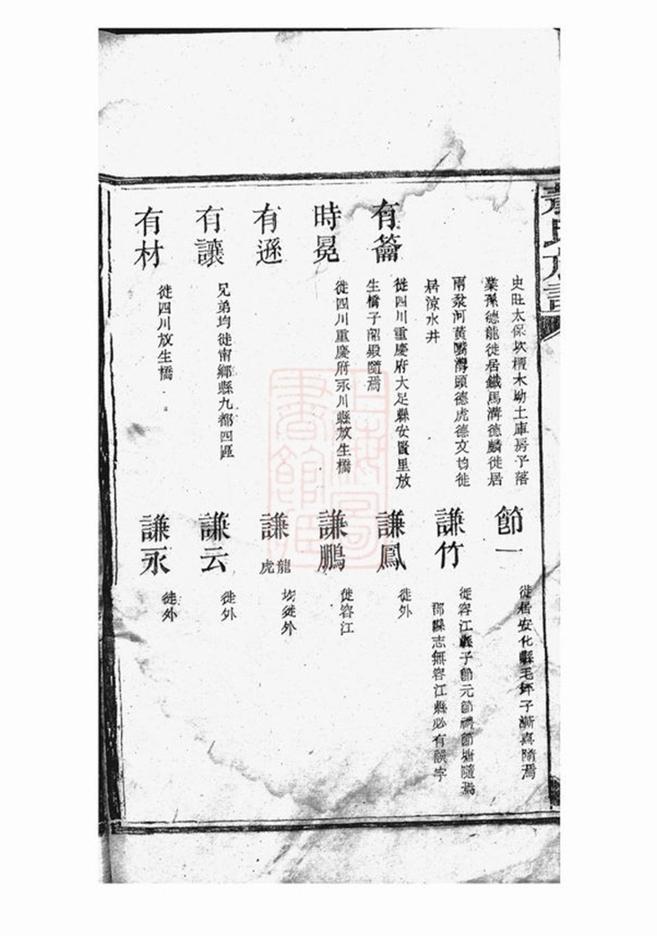 史旺太保坎檟木坳土庫房子落
業孫德龍徙居鐵馬溝德麟徙居
兩汊河黃嘴灣頭德虎德文均徙
居涼水井
有籥
徙四川重慶府大足縣安賢里放
生橋子韶殿隨焉
時晃
徙四川重慶府永川縣放生橋
有遜
有讓
兄弟均徙甯鄉縣九都四區
有材
徙四川放生橋
節一
徙居安化縣毛坪子漸喜隨焉
謙竹
徙容江縣子節元節禮節塘隨焉
部縣志無容江縣必有誤字
謙鳳
徙外
謙鵬
徙容江
謙龍虎
均徙外
謙云
徙外
謙永
徙外